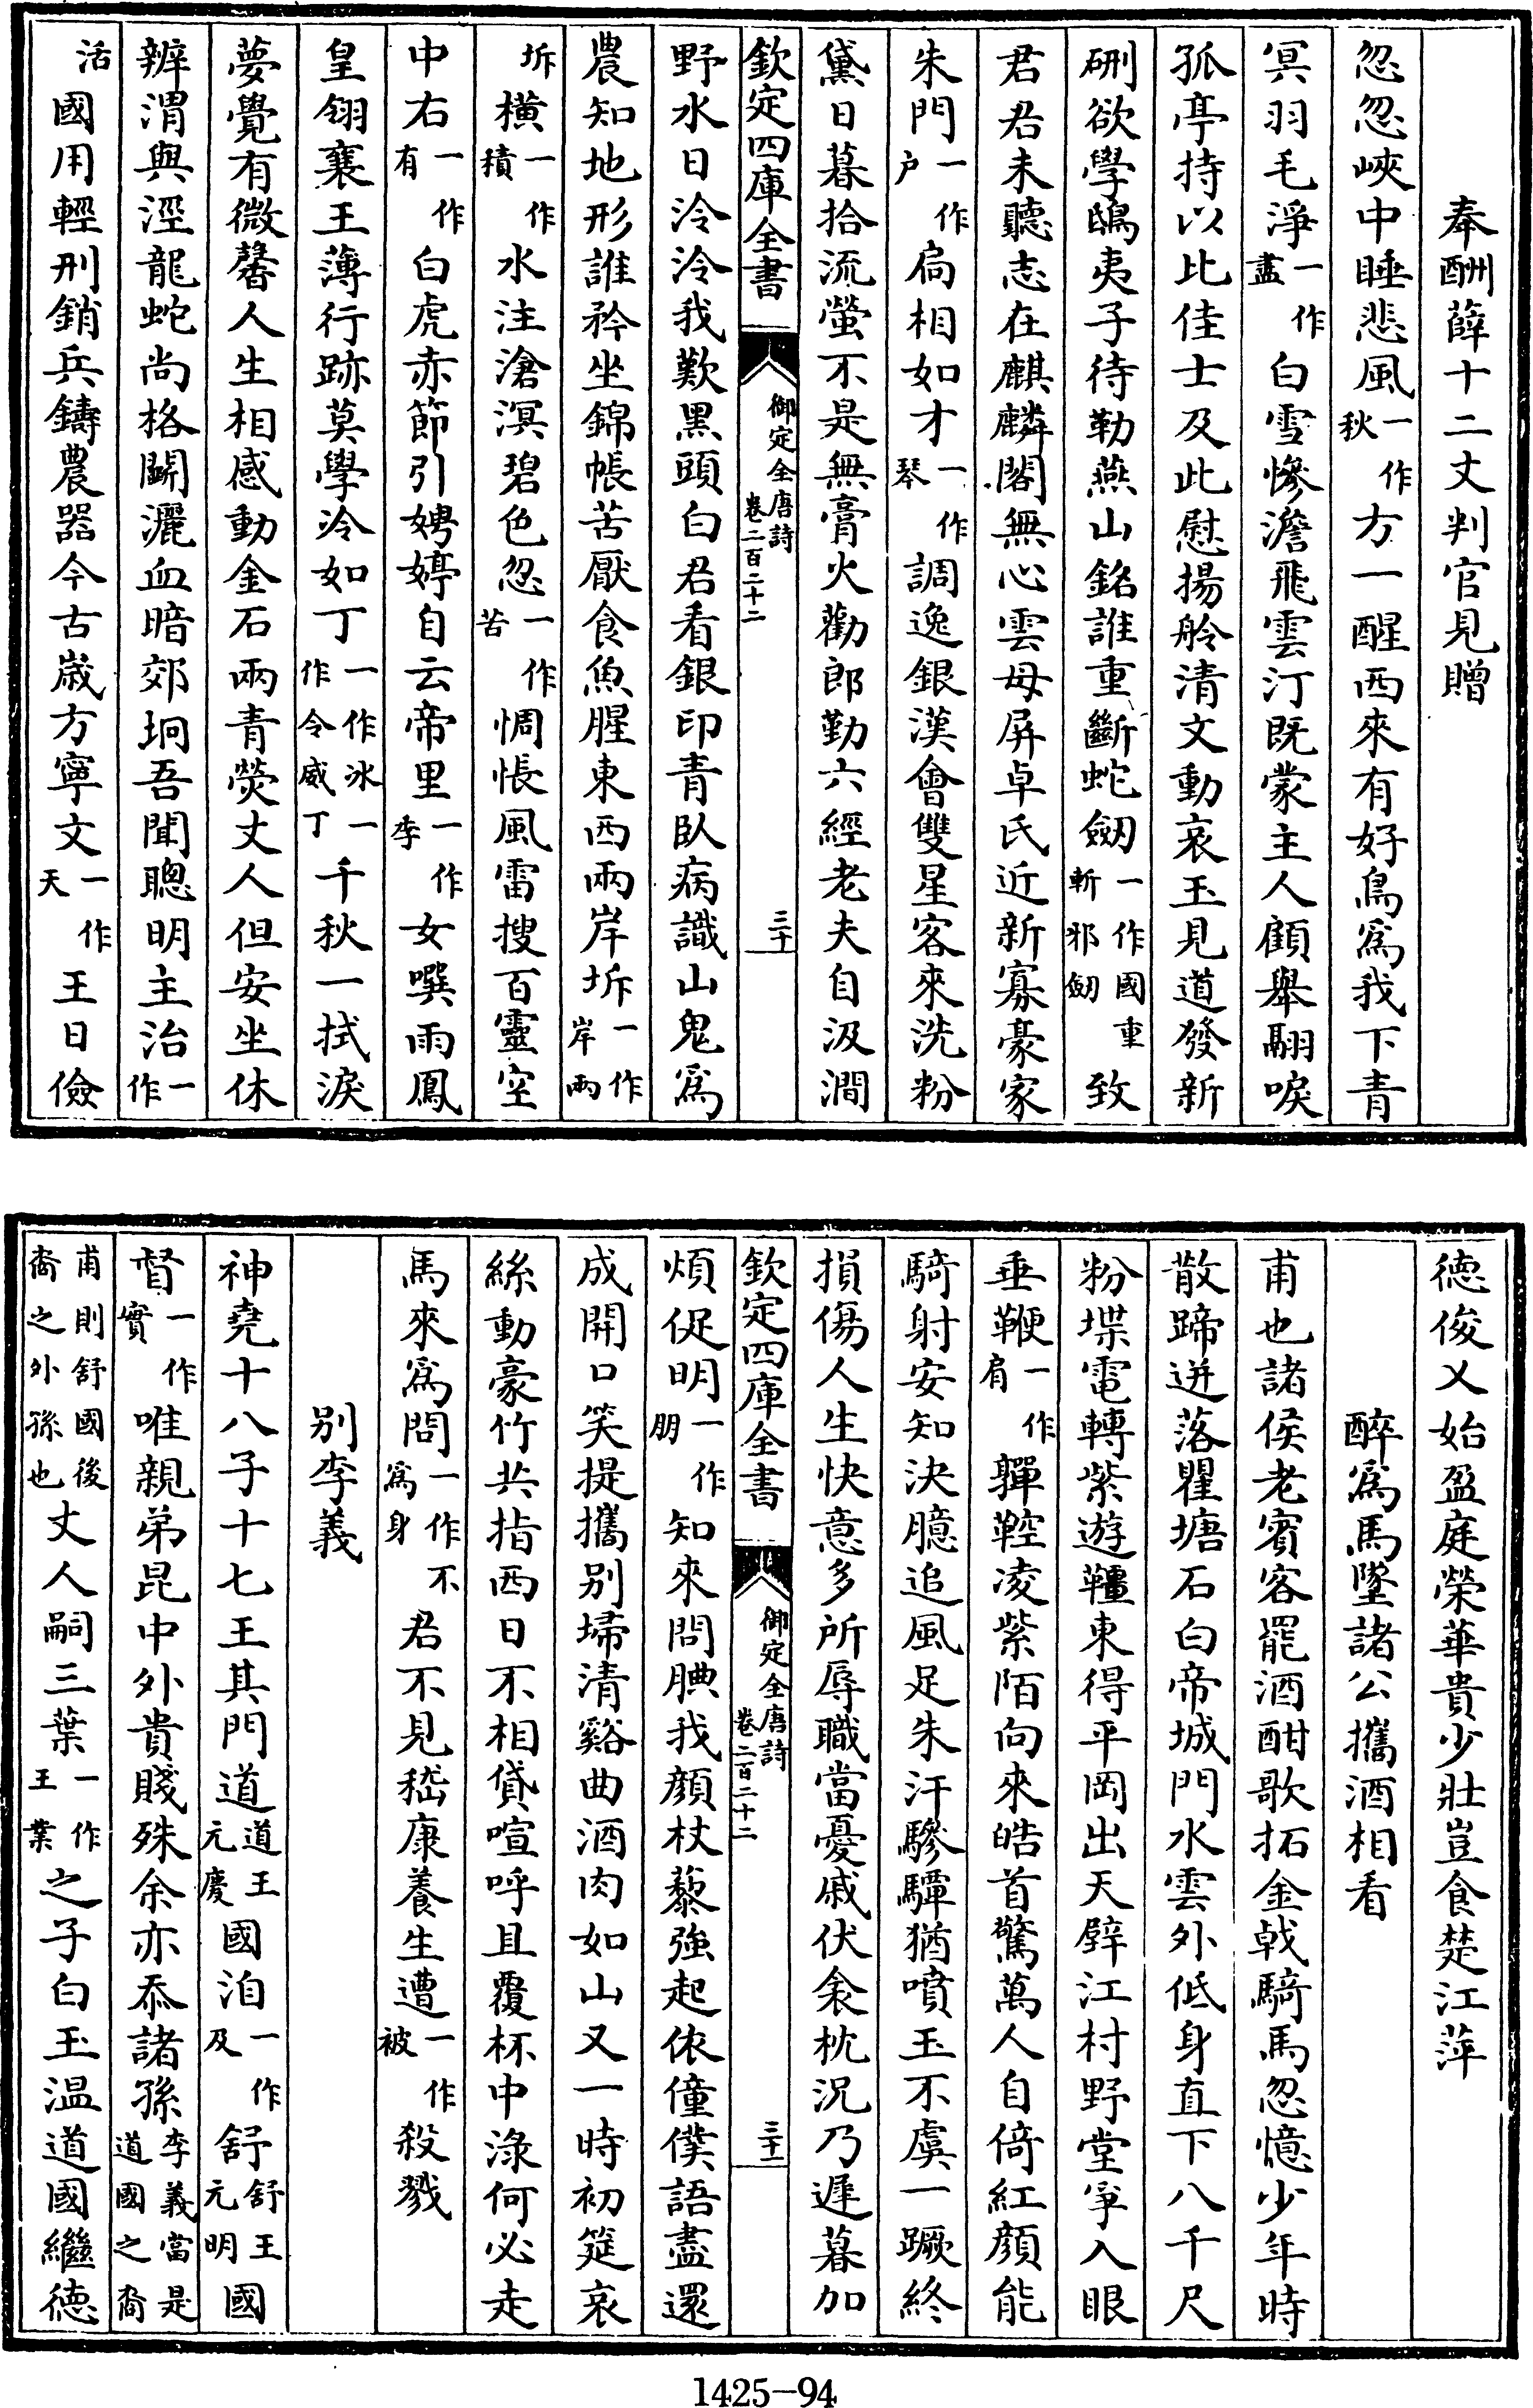 奉酬薛十二丈判官見贈
忽忽峽中睡悲風一作秋方一醒西來有好鳥爲我下青
冥羽毛淨一作盡白雪慘澹飛雲汀既蒙主人顧舉翮唳
孤亭持以比佳士及此慰揚舲清文動哀玉見道發新
硎欲學鴟夷子待勒燕山銘誰重斷蛇劔一作國重斬邪劔致
君君未聽志在麒麟閣無心雲母屏卓氏近新寡豪家
朱門一作户扃相如才一作琴調逸銀漢會雙星客來洗粉
黛日暮拾流螢不是無膏火勸郎勤六經老夫自汲澗
欽定四庫全書 御定全唐詩 卷二百二十二 三十
野水日泠泠我歎黑頭白君看銀印青臥病識山鬼爲
農知地形誰矜坐錦帳苦厭食魚腥東西兩岸坼一作岸兩
坼橫一作積水注滄溟碧色忽一作苦惆悵風雷搜百靈空
中右一作有白虎赤節引娉婷自云帝里一作季女噀雨鳳
皇翎襄王薄行跡莫學冷如丁一作冰一作令威丁千秋一拭淚
夢覺有微馨人生相感動金石兩青熒丈人但安坐休
辨渭與涇龍蛇尚格鬭灑血暗郊坰吾聞聰明主治一作
活國用輕刑銷兵鑄農器今古歲方寧文一作天王日儉
德俊乂始盈庭榮華貴少壯豈食楚江萍
醉爲馬墜諸公攜酒相看
甫也諸侯老賓客罷酒酣歌拓金戟騎馬忽憶少年時
散蹄迸落瞿塘石白帝城門水雲外低身直下八千尺
粉堞電轉紫遊韁東得平岡出天壁江村野堂爭入眼
垂鞭一作肩嚲鞚凌紫陌向來皓首驚萬人自倚紅顏能
騎射安知決臆追風足朱汗驂驔猶噴玉不虞一蹶終
損傷人生快意多所辱職當憂戚伏衾枕況乃遲暮加
欽定四庫全書 御定全唐詩 卷二百二十二 三十一
煩促明一作朋知來問腆我顏杖藜強起依僮僕語盡還
成開口笑提攜別埽清谿曲酒肉如山又一時初筵哀
絲動豪竹共指西日不相貸喧呼且覆杯中淥何必走
馬來爲問一作不爲身君不見嵇康養生遭一作被殺戮
別李義
神堯十八子十七王其門道道王元慶國洎一作及舒舒王元明國
督一作實唯親弟昆中外貴賤殊余亦忝諸孫李義當是道國之裔
甫則舒國後裔之外孫也丈人嗣三葉一作王業之子白玉温道國繼德
1425-94